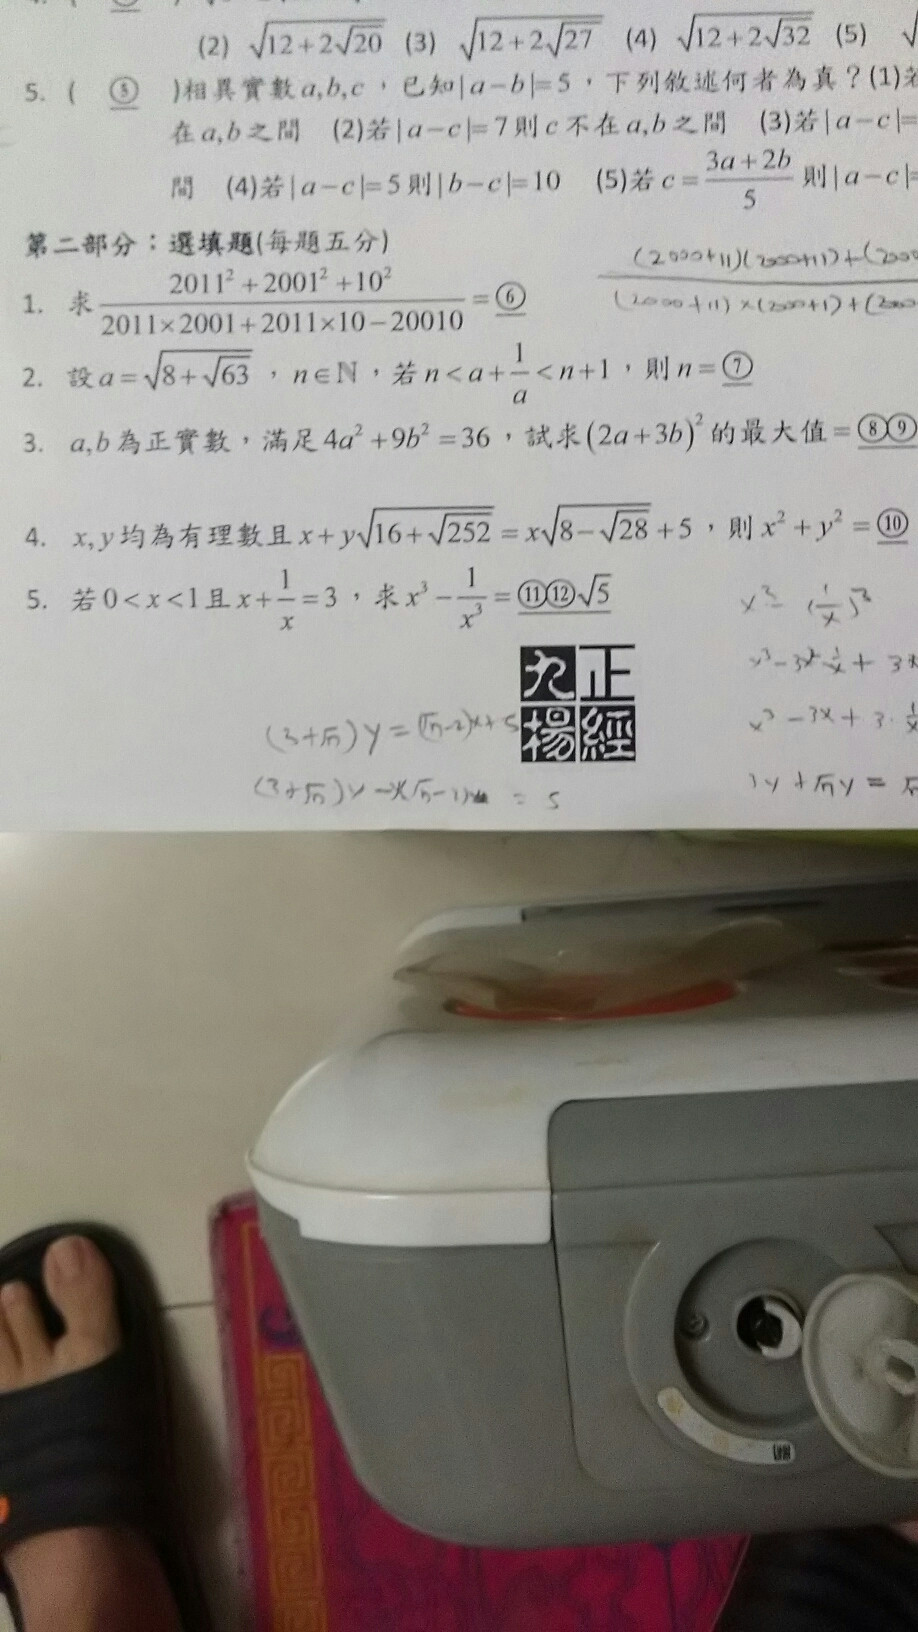 (2) √(12+2√20) (3) √(12+2√27) (4) √(12+2√32) (5) √
5. ( ⑤ )相異實數 a,b,c,已知|a−b|=5,下列敘述何者為真?(1)若
在 a,b 之間 (2)若|a−c|=7 則 c 不在 a,b 之間 (3)若|a−c|=
間 (4)若|a−c|=5 則|b−c|=10 (5)若 c=(3a+2b)/5 則|a−c|=
第二部分:選填題(每題五分)
(2000+11)(2000+1)+(200
1. 求 (2011²+2001²+10²)/(2011×2001+2011×10−20010) =⑥
(2000+11)×(2000+1)+(200
2. 設 a=√(8+√63),n∈ℕ,若 n<a+1/a<n+1,則 n=⑦
3. a,b 為正實數,滿足 4a²+9b²=36,試求(2a+3b)²的最大值=⑧⑨
4. x,y 均為有理數且 x+y√(16+√252)=x√(8−√28)+5,則 x²+y²=⑩
5. 若 0<x<1 且 x+1/x=3,求 x³−1/x³=⑪⑫√5
九正
楊經
(3+√7)y=(√7-2)x+5